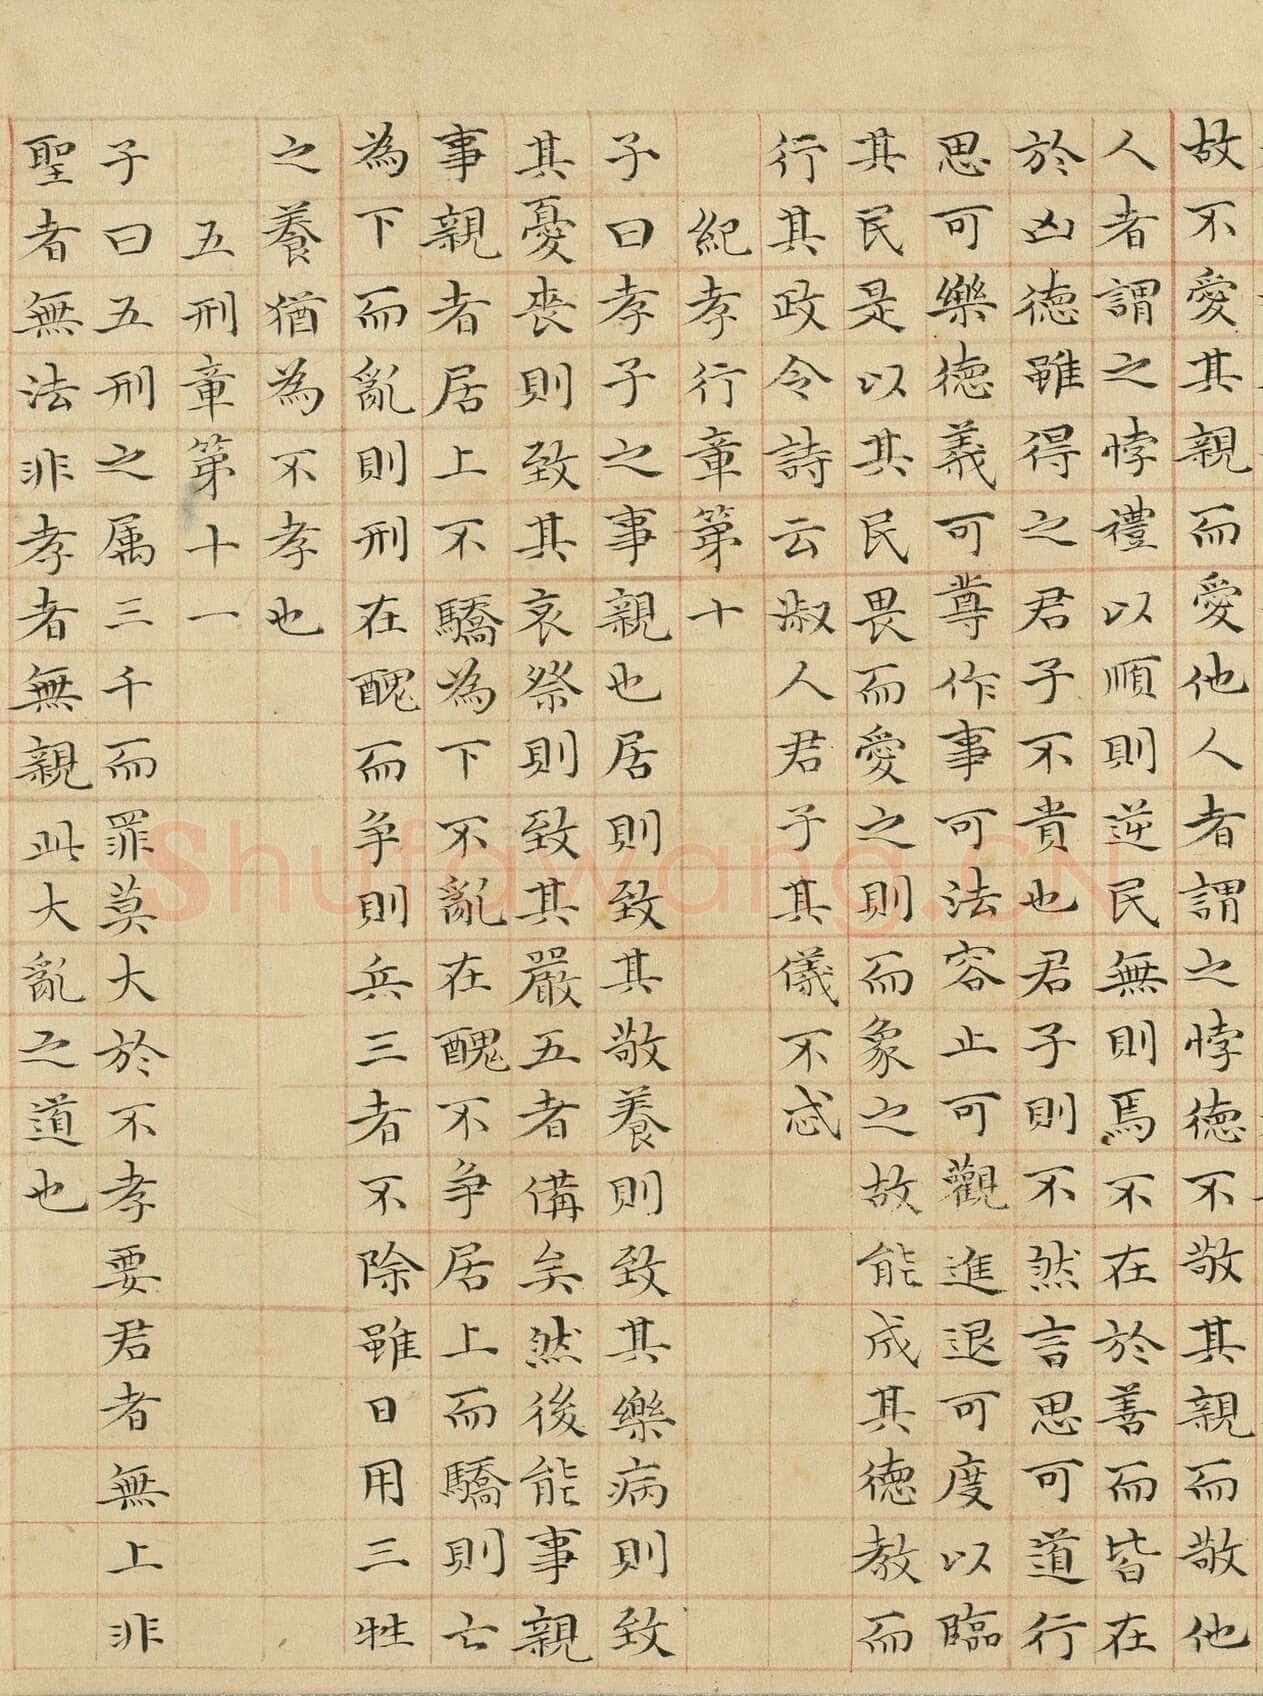 故不愛其親而愛他人者謂之悖德不敬其親而敬他
人者謂之悖禮以順則逆民無則焉不在於善而皆在
於凶德雖得之君子不貴也君子則不然言思可道行
思可樂德義可尊作事可法容止可觀進退可度以臨
其民是以其民畏而愛之則而象之故能成其德教而
行其政令詩云淑人君子其儀不忒
紀孝行章第十
子曰孝子之事親也居則致其敬養則致其樂病則致
其憂喪則致其哀祭則致其嚴五者備矣然後能事親
事親者居上不驕為下不亂在醜不争居上而驕則亡
為下而亂則刑在醜而争則兵三者不除雖日用三牲
之養猶為不孝也
五刑章第十一
子曰五刑之属三千而罪莫大於不孝要君者無上非
聖者無法非孝者無親此大亂之道也
Shufawang.CN